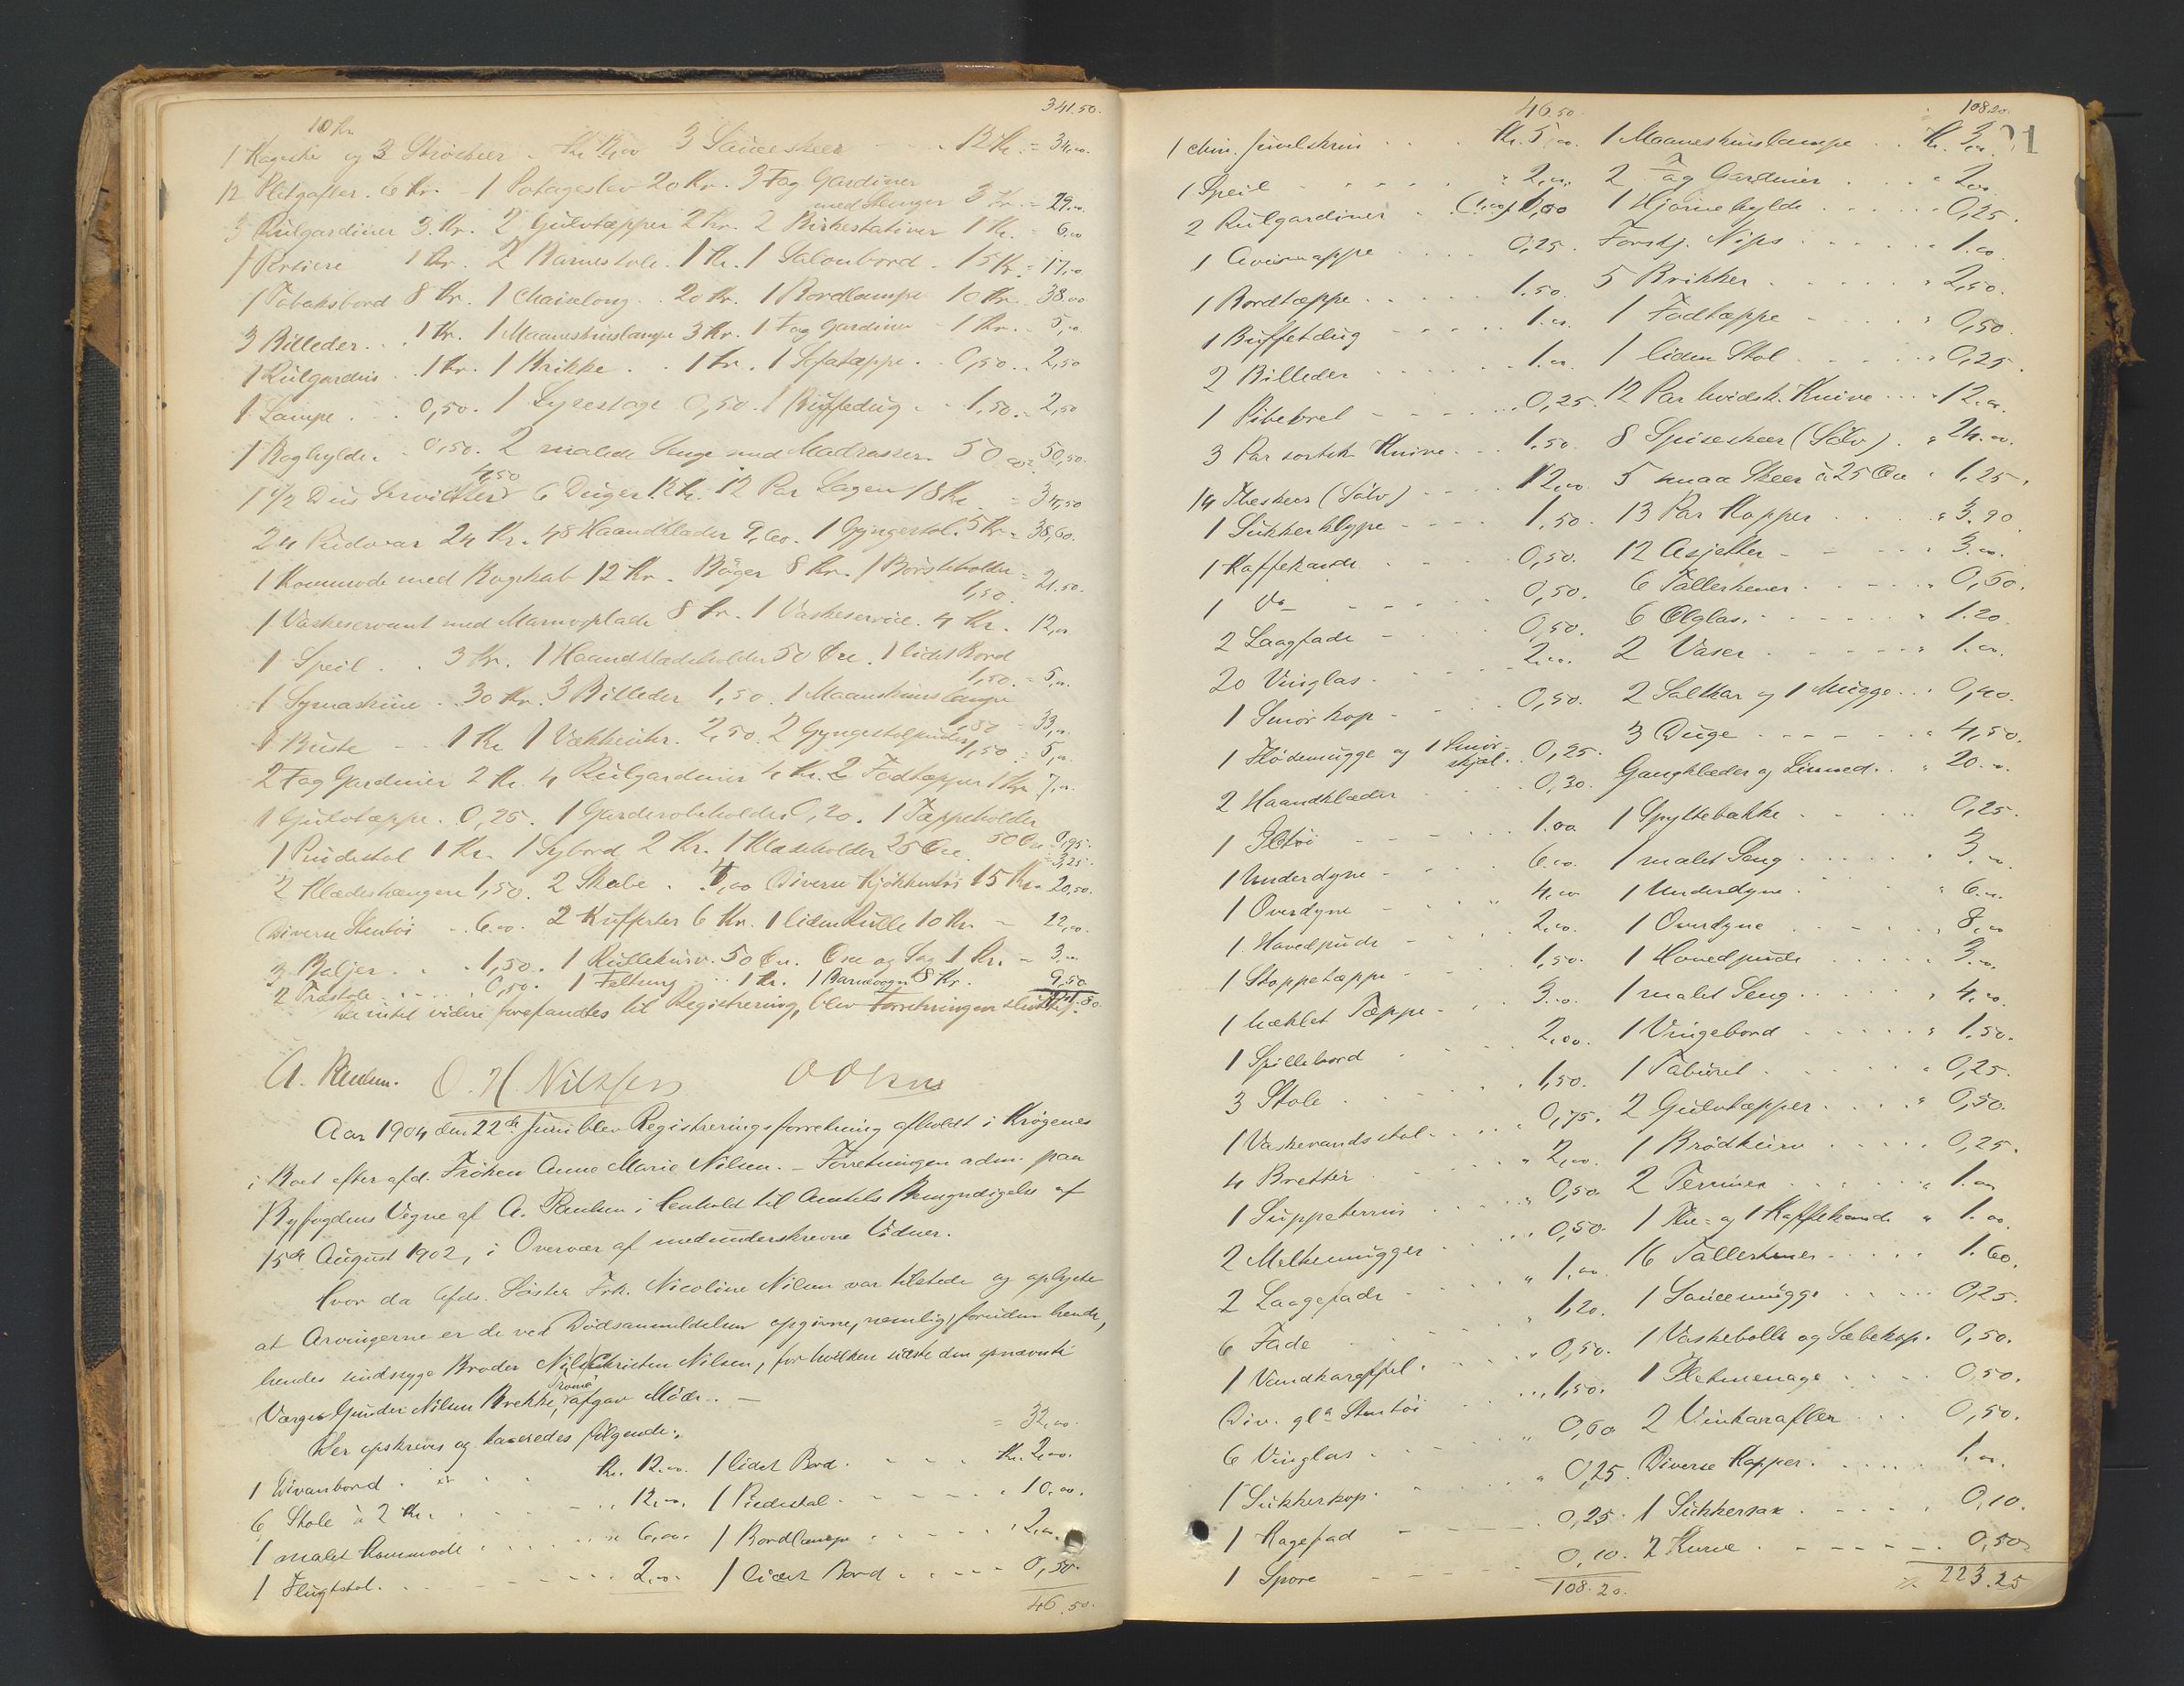 341.50.
10 Kr.
1 Kageske og 3 Ströskeer . 3 Sauceskeer . . . 12 Kr. = 34,00.
12 Pletgafler . 6 Kr. - 1 Potageslev 20 Kr. 3 Fag Gardiner
med Stenger 3 Kr. = 29.00.
3 Rulgardiner 3. Kr. 2 Gulvtæpper 2 Kr. 2 Birkestativer 1 Kr. = 6.00
1 Portiere 1 Kr. 2 Barnestole . 1 Kr. 1 Salonbord . 15 Kr. = 17,00
1 Tobaksbord 8 Kr. 1 Chaiselong . . 20 Kr. 1 Bordlampe 10 Kr. 38.00
3 Billeder . . 1 Kr. 1 Maaneskinslampe 3 Kr. 1 Fag Gardiner - 1 Kr. - 5,00
1 Rulgardin . . 1 Kr. 1 Brikke . . 1 Kr. 1 Sofatæppe . . 0,50 . . 2,50
1 Lampe . . 0,50. 1 Lysestage 0,50. 1 Buffedug . . 1,50. - 2,50
1 Boghylde . . 0,50. 2 malede Senge med Madrasser . 50.00 = 50,50.
4,50
1 1/2 Dus Servietter 6 Duger 12 Kr. 12 Par Lagen 18 Kr. = 34,50
24 Pudevar 24 Kr. 48 Haandklæder 9,60. 1 Gyngestol. 5 Kr. = 38,60.
1 Kommode med Bogskab 12 Kr. Böger 8 Kr. 1 Börsteholder
1,50. = 21.50.
1 Vaskeservant med Marmorplade 8 Kr. 1 Vaskeservice. 4 Kr. 12,00
1 Speil . . 3 Kr. 1 Haandklædeholder 50 Öre. 1 lidet Bord
1,50. = 5,00.
1 Symaskine . . 30 Kr. 3 Billeder 1,50. 1 Maaneskinslampe
1,50 = 33,00.
1 Buste - . . 1 Kr. 1 Vækkeuhr. 2,50. 2 Gyngestolpuder
1,50 = 5,00.
2 Fag Gardiner 2 Kr. 4 Rulgardiner 4 Kr. 2 Fodtæpper 1 Kr. 7,00.
1 Gulvtæppe . 0,25. 1 Garderobeholder 0,20. 1 Tæppeholder
50 Öre 0,95.
1 Pudestol 1 Kr. 1 Sybord 2 Kr. 1 Klædeholder 25 Öre. = 3,25.
2 Klædeshængere 1,50. 2 Skabe . . 4,00 Diverse Kjökkentöi 15 Kr. = 20,50.
Diverse Stentöi - . 6.00. 2 Kufferter 6 Kr. 1 liden Rulle 10 Kr. - 22,00.
3 Baljer . . . 1,50. 1 Rullekurv . 50 Öre. Öxe og Sag 1 Kr. - 3.00
2 Træstole . . . 0,50. 1 Feltseng . . 1 Kr. 1 Barnevogn 8 Kr. 9,50
Da intet videre forefandtes til Registrering, blev Forretningen sluttet.
A. Paulsen. O. H. Nilssen
Aar 1904 den 22de Juni blev Registreringsforretning afholdt i Krögenes
i Boet efter afd. Fröken Anne Marie Nilsen. - Forretningen adm. paa
Byfogdens Vegne af A. Paulsen i Henhold til Amtets Bemyndigelse af
15de August 1902, i Overvær af medunderskrevne Vidner.
Hvor da Afds. Söster Frk. Nicoline Nilsen var tilstede og oplyste
at Arvingerne er de ved Dödsanmeldelsen opgivne, nemlig, foruden hende,
hendes sindssyge Broder Nils Christen Nilsen, for hvilken sidste den opnævnte
Værge Gunder Nilsen Brekke, Tromö afgav Möde. -
Der opskreves og taxeredes fölgende:
= 32,00.
1 Divanbord . . . Kr. 12.00. 1 lidet Bord . . . Kr. 2,00.
6 Stole à 2 Kr. . . . 12,00. 1 Piedestal . . . 10.00.
1 malet Kommode . . . 6,00. 1 Bordlampe . . . 2,00.
1 Flugtstol. . . . 2,00. 1 lidet Bord . . . 0,50.
46.50.
46.50 108.20.
21
1 chin. Juvelskrin . . . Kr. 5,00. 1 Maaneskinslampe . . Kr. 3,00.
1 Speil . . . 2,00. 2 Fag Gardiner . . . 2,00
2 Rulgardiner . (1,00) 1,00 1 Hjörnehylde . . . 0,25.
1 Avismappe . . . 0,25. Forskj. Nips . . . 1.00
1 Bordtæppe . . . 1.50. 5 Brikker . . . 2,50.
1 Buffetdug . . . 1.00. 1 Fodtæppe . . . 0,50.
2 Billeder . . . 1.00. 1 liden Stol . . . 0,25.
1 Pibebret . . . 0,25. 12 Par hvidsk. Knive . . . 12.00.
3 Par sortsk. Knive . . . 1.50. 8 Spiseskeer (Sölv) . 24.00.
14 Theskeer (Sölv) . . . 12,00. 5 smaa Skeer à 25 Öre . 1,25.
1 Sukkerklype . . . 1.50. 13 Par Kopper . . . 3.90
1 Kaffekande . . . 0,50. 12 Asjetter . . . 3.00.
1 do . . . 0,50. 6 Tallerkener . . . 0,60.
2 Laagfade . . . 0,50. 6 Ølglas. . . . 1.20
20 Vinglas . . . 2,00. 2 Vaser . . . 1.00.
1 Smörkop . . . 0,50. 2 Saltkar og 1 Mugge . . . 0,40.
1 Flödemugge og 1 Smör-
skjæl. 0,25. 3 Duge . . . 4,50.
2 Haandklæder . . . 0,30. Gangklæder og Linned . . 20.00.
1 Iltöi . . . 1.00 1 Spyttebakke . . . 0,25.
1 Underdyne . . . 6.00. 1 malet Seng . . . 3.00
1 Overdyne . . . 4.00 1 Underdyne . . . 6.00.
1 Hovedpude . . . 2,00. 1 Overdyne . . . 8,00
1 Stoppetæppe . . . 1,50. 1 Hovedpude . . . 3.00.
1 hæklet Tæppe . . . 3.00. 1 malet Seng . . . 4.00.
1 Spillebord . . . 2,00. 1 Vingebord . . . 1.50.
3 Stole . . . 1,50. 1 Taburet . . . 0,25.
1 Vaskevandsstol . . . 0,75. 2 Gulvtæpper . . . 0,50.
4 Bretter . . . 2,00. 1 Brödkurv . . . 0,25.
1 Suppeterrin . . . 0,50 2 Terriner . . . 1.00
2 Melkemugger . . . 0,50. 1 The- og 1 Kaffekande . 1.00.
2 Laagefade . . . 1,00. 16 Tallerkener . . . 1.60.
6 Fade . . . 1,20. 1 Saucemugge . . . 0,25.
1 Vandkaraffel . . . 0,50. 1 Vaskebolle og Sæbekop. 0,50.
Div. gl. Stentöi . . . 1,50. 1 Pletmenage . . . 0,50.
6 Vinglas . . . 0,60 2 Vinkarafler . . . 0,50.
1 Sukkerkop . . . 0,25. Diverse Kopper . . . 1.00.
1 Kagefad . . . 0,25. 1 Sukkersax . . . 0,10.
1 Spore . . . 0,10. 2 Kurve . . . 0,50
108.20. 223.25